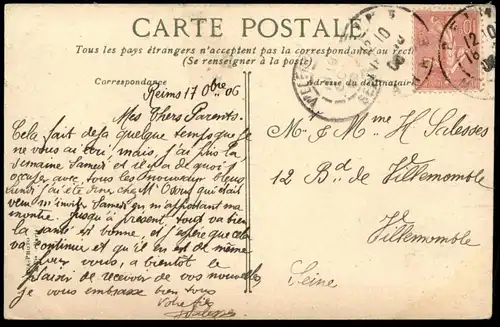 CARTE POSTALE
Tous les pays étrangers n'acceptent pas la correspondance au recto
(Se renseigner à la poste)
Correspondance
Adresse du destinataire
Reims 17 8bre 06
Mes Chers Parents.
Cela fait déja quelque temps que je
ne vous ai écri mais, j'ai plus la
semaine Samedi et il y a de quoi s'
occuper avec tous les nouveaux bleus
j'ai été diner chez M. qui était
venu m'inviter Samedi en m'apportant ma
montre. Jusqu'à présent tout va bien
la santé est bonne, et j'espère que cela
va continuer et qu'il en est de même
pour vous, a bientôt le
plaisir de recevoir de vos nouvelles
je vous embrasse bien tous
Votre fils
M. & Mme H Salesses
12 Bd. de Villemomble
Villemomble
Seine